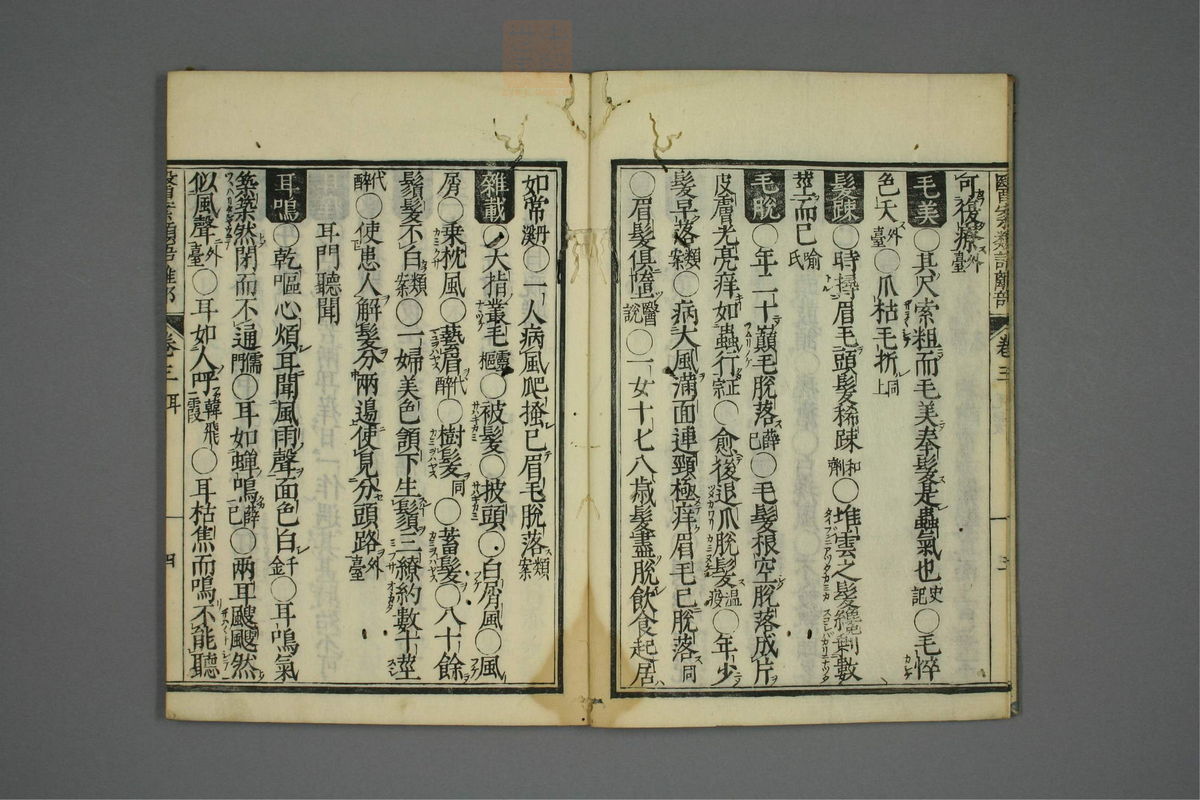 可復療外臺
毛美○其尺索粗而毛美奉髮是蟲氣也史記○毛悴
色夭外臺○爪枯毛折同上
髮疎○時撏眉毛頭髮稀疎和劑○堆雲之髮纔剩數
莖而已喻氏
毛脫○年二十巔毛脫落薛己○毛髮根空脫落成片
皮膚光亮痒如蟲行正○愈後退爪脫髮温疫○年少
髮早落類案○病大風滿面連頸極痒眉毛已脫落同
○眉髮俱墮醫說○一女十七八歲髮盡脫飲食起居
如常丹溪○一人病風爬搔已眉毛脫落類案
雜載○大指叢毛靈樞○被髮○披頭○白屑風○風
屑○乘枕風○藝眉代醉○樹髮同○蓄髮○八十餘
鬚髮不白類案○一婦美色頷下生鬚三繚約數十莖
代醉○使患人解髮分兩邊使見分頭路外臺
耳門聽聞
耳鳴○乾嘔心煩耳聞風雨聲面色白千金○耳鳴氣
築築然閉而不通儒門○耳如蟬鳴薛己○兩耳颼颼然
似風聲外臺○耳如人呼韓飛霞○耳枯焦而鳴不能聽
卷三 耳
四
卷三
三